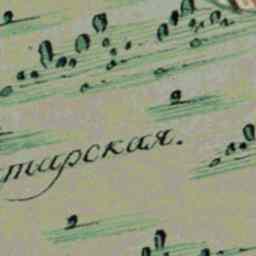 тирская.